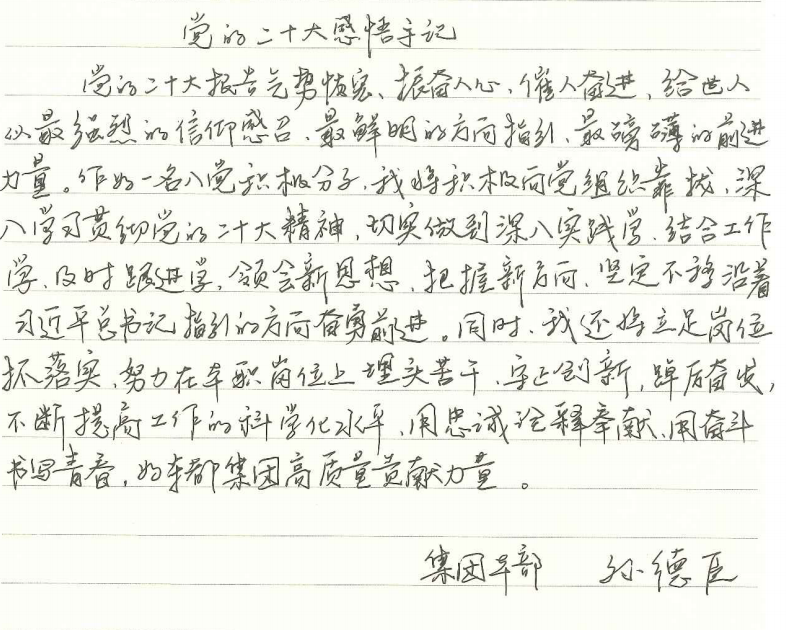 党的二十大感悟手记
党的二十大报告气势恢宏、振奋人心、催人奋进,给世人
以最强烈的信仰感召、最鲜明的方向指引、最磅礴的前进
力量。作为一名入党积极分子,我将积极向党组织靠拢,深
入学习贯彻党的二十大精神,切实做到深入实践学、结合工作
学、及时跟进学,领会新思想、把握新方向,坚定不移沿着
习近平总书记指引的方向奋勇前进。同时,我还将立足岗位
抓落实,努力在本职岗位上埋头苦干、守正创新,踔厉奋发,
不断提高工作的科学化水平,用忠诚诠释奉献、用奋斗
书写青春,为东都集团高质量贡献力量。
集团干部 孙德臣